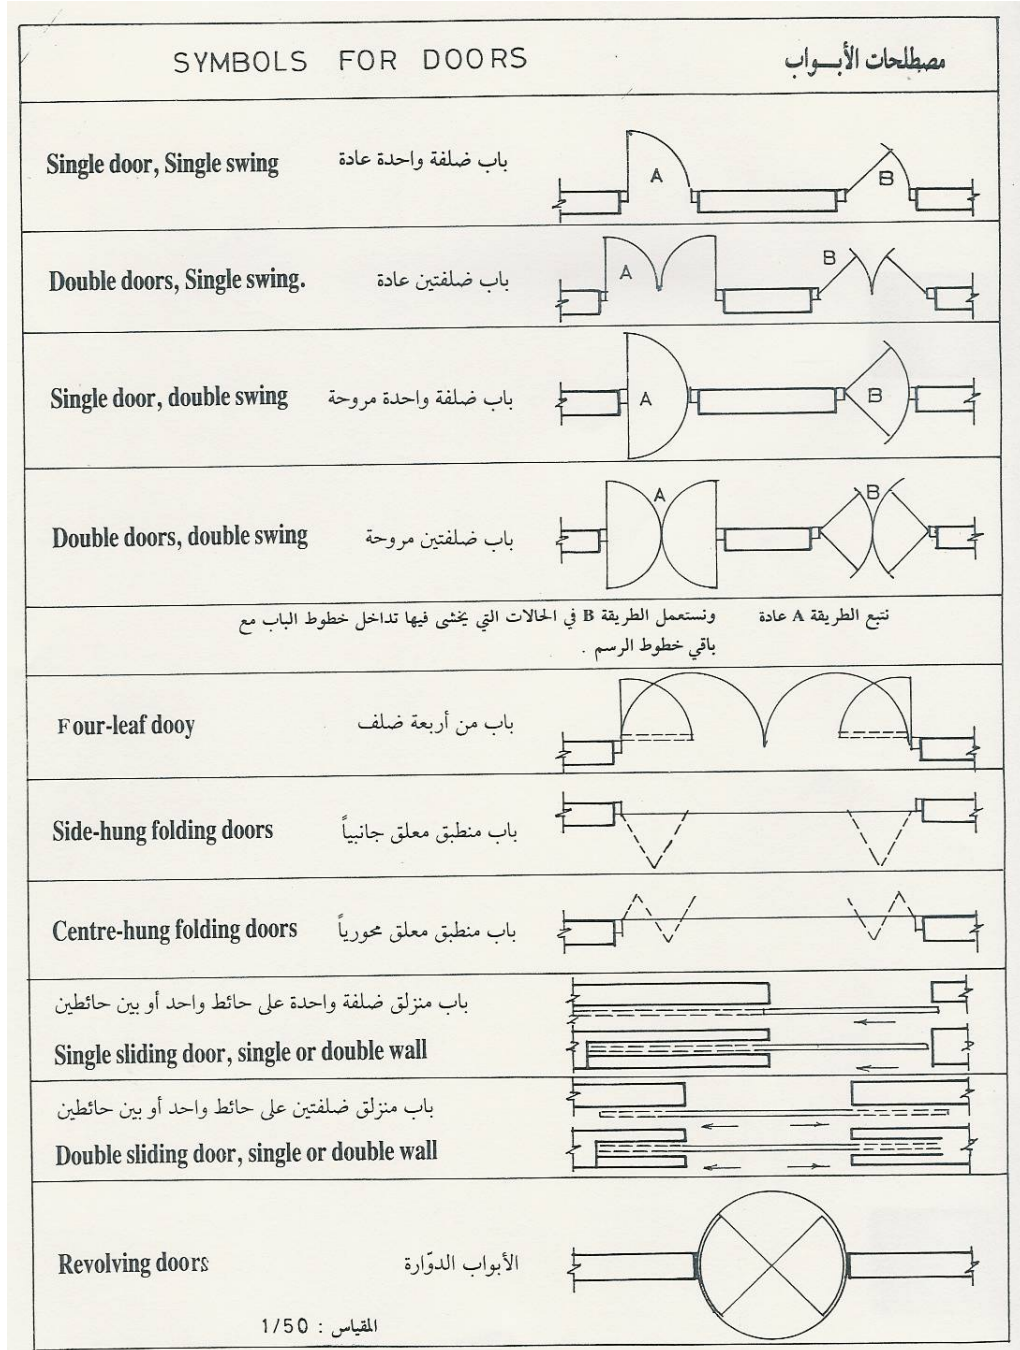 SYMBOLS FOR DOORS
مصطلحات الأبـــواب
Single door, Single swing
باب ضلفة واحدة عادة
A
B
Double doors, Single swing.
باب ضلفتين عادة
A
B
Single door, double swing
باب ضلفة واحدة مروحة
A
B
Double doors, double swing
باب ضلفتين مروحة
A
B
نتبع الطريقة A عادة ونستعمل الطريقة B في الحالات التي يخشى فيها تداخل خطوط الباب مع
باقي خطوط الرسم .
Four-leaf dooy
باب من أربعة ضلف
Side-hung folding doors
باب منطبق معلق جانبياً
Centre-hung folding doors
باب منطبق معلق محورياً
باب منزلق ضلفة واحدة على حائط واحد أو بين حائطين
Single sliding door, single or double wall
باب منزلق ضلفتين على حائط واحد أو بين حائطين
Double sliding door, single or double wall
Revolving doors
الأبواب الدوّارة
المقياس : 1/50